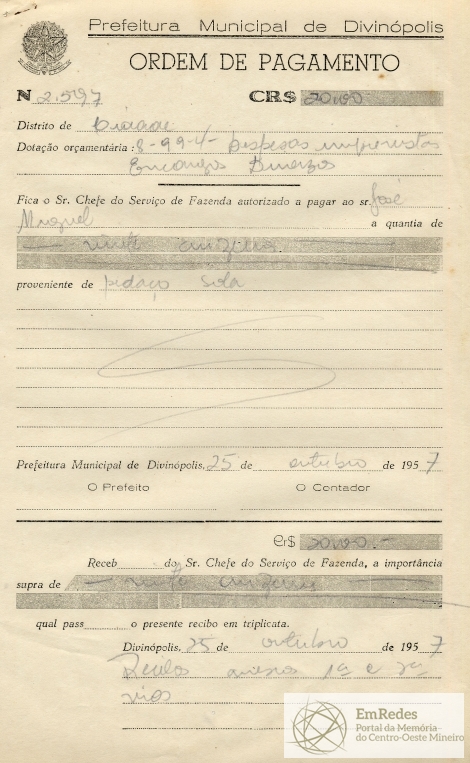 Prefeitura Municipal de Divinópolis
ORDEM DE PAGAMENTO
N 2.597 CR$ 20,00
Distrito de Cidade
Dotação orçamentária: 8-99-4- Despesas imprevistas
Encargos Diversos
Fica o Sr. Chefe do Serviço de Fazenda autorizado a pagar ao sr. José
Miguel a quantia de
vinte cruzeiros
proveniente de pedaço sola
Prefeitura Municipal de Divinópolis, 25 de outubro de 1957
O Prefeito O Contador
Cr$ 20,00.-
Receb do Sr. Chefe do Serviço de Fazenda, a importância
supra de vinte cruzeiros
qual pass o presente recibo em triplicata.
Divinópolis, 25 de outubro de 1957
Recibo anexo 1ª e 2ª
vias
EmRedes
Portal da Memória
do Centro-Oeste Mineiro